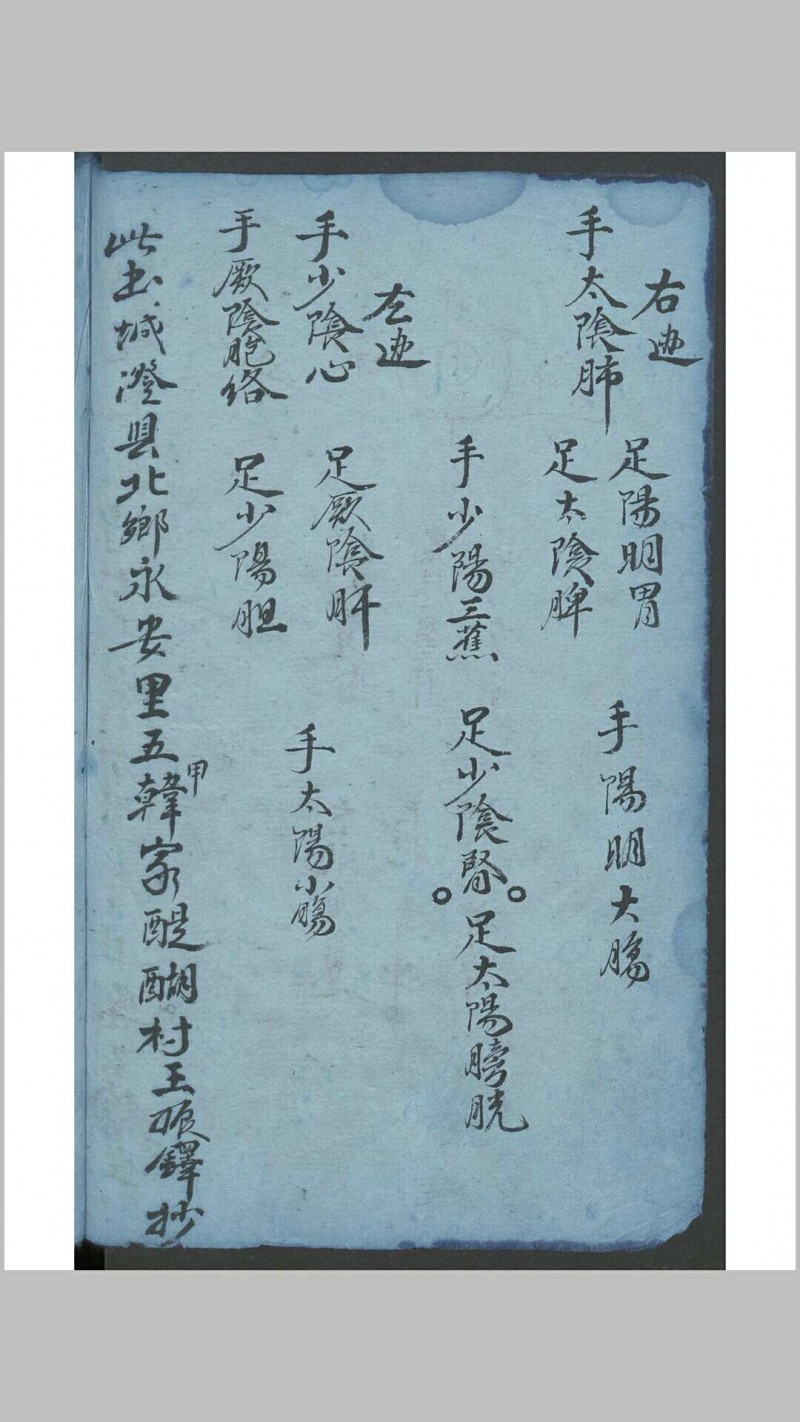 右边
手太陰肺
足陽明胃
足太陰脾
手陽明大腸
手少陽三蕉
足少陰腎
足太陽膀胱
左边
手少陰心
手厥陰胞络
足厥陰肝
足少陽胆
手太陽小腸
此出城澄县北鄉永安里五甲韓家醍醐村王振鐸抄